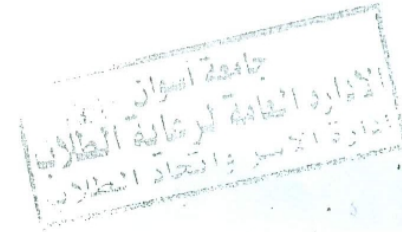 جامعة أسوان
الإدارة العامة لرعاية الطلاب
إدارة الأسر واتحاد الطلاب